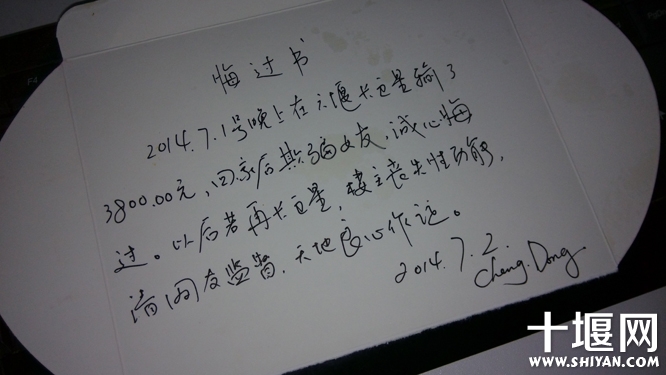 悔过书
2014.7.1号晚上在六堰长卫星输了
3800.00元，回家后欺骗女友，诚心悔
过。以后若再长卫星，楼主丧失性功能，
请网友监督，天地良心作证。
2014.7.2.
Cheng.Dong
十堰网
WWW.SHIYAN.COM